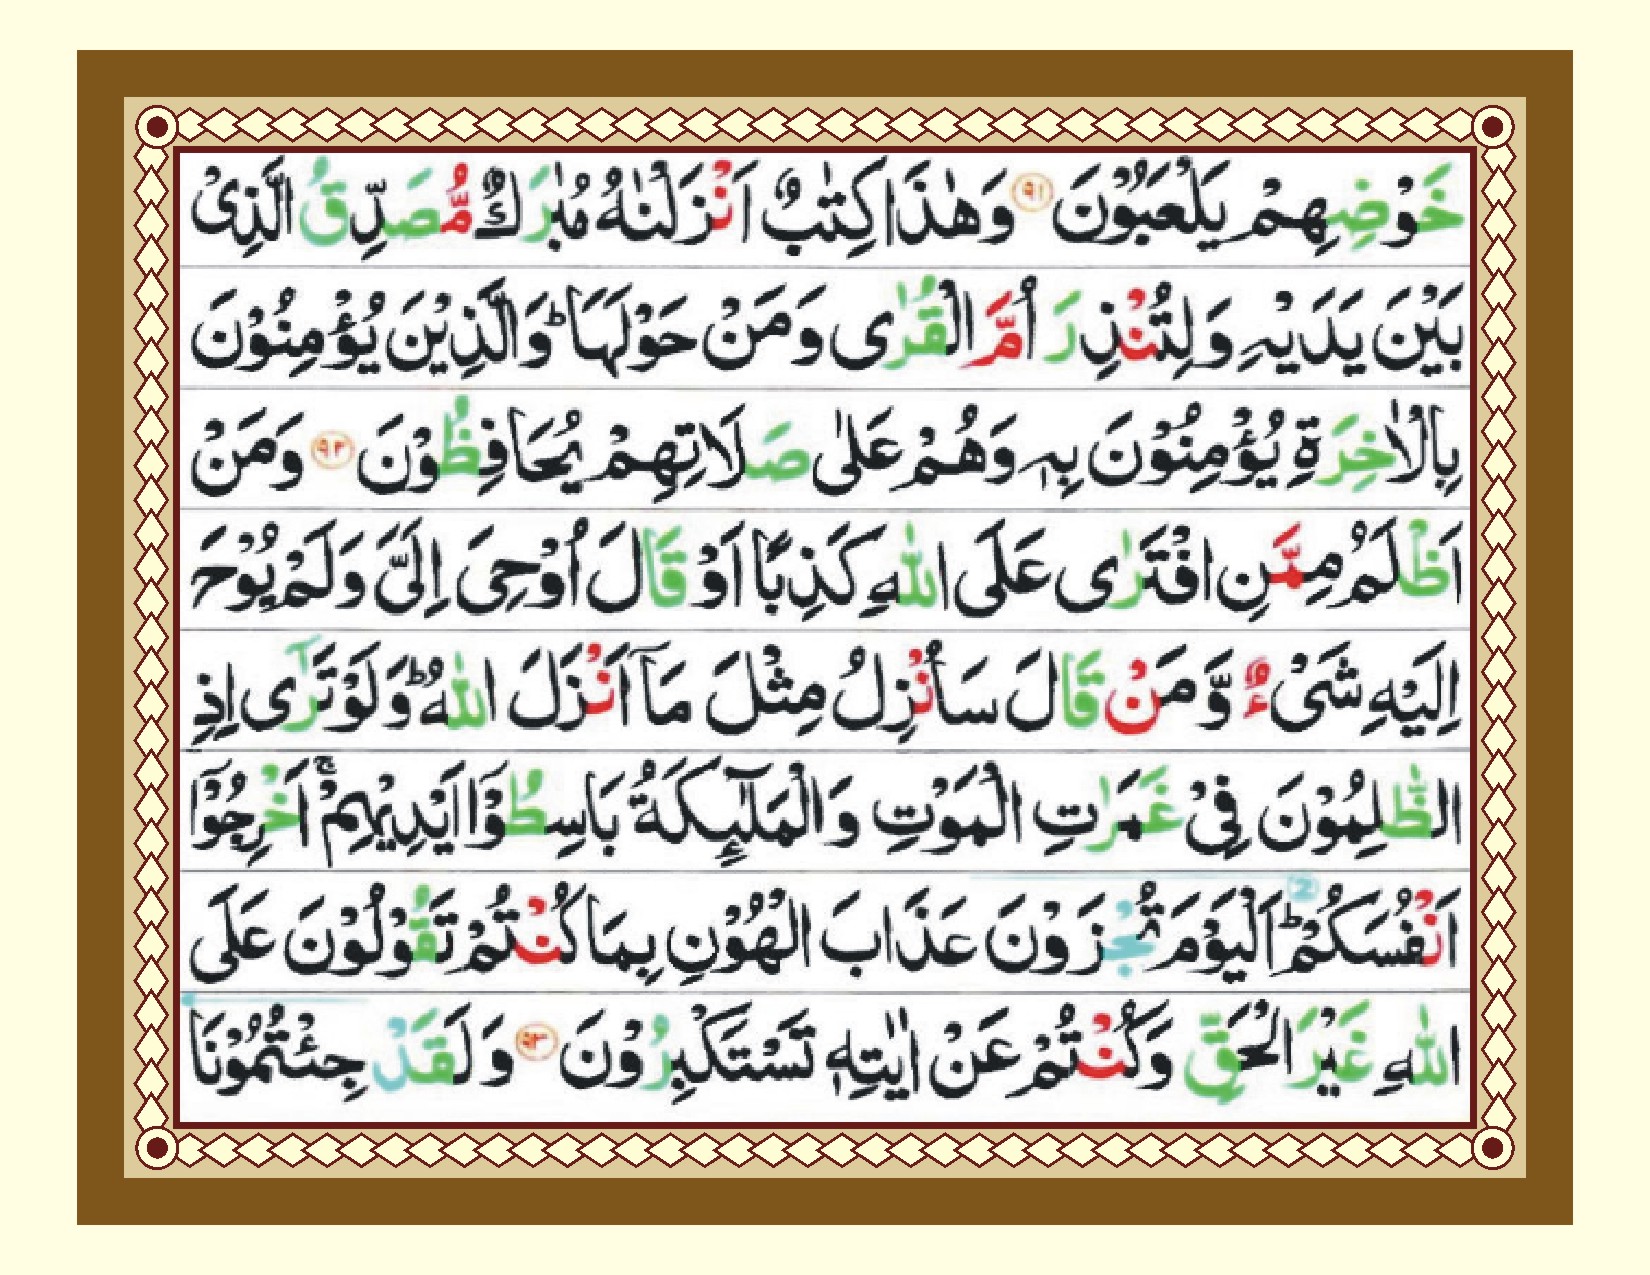 خَوۡضِهِمۡ يَلۡعَبُوۡنَ ﴿۹۱﴾ وَهٰذَا كِتٰبٌ اَنۡزَلۡنٰهُ مُبٰرَكٌ مُّصَدِّقُ الَّذِىۡ
بَيۡنَ يَدَيۡهِ وَلِتُنۡذِرَ اُمَّ الۡقُرٰى وَمَنۡ حَوۡلَهَا ؕ وَالَّذِيۡنَ يُؤۡمِنُوۡنَ
بِالۡاٰخِرَةِ يُؤۡمِنُوۡنَ بِهٖ وَهُمۡ عَلٰى صَلَاتِهِمۡ يُحَافِظُوۡنَ ﴿۹۲﴾ وَمَنۡ
اَظۡلَمُ مِمَّنِ افۡتَرٰى عَلَى اللّٰهِ كَذِبًا اَوۡ قَالَ اُوۡحِىَ اِلَىَّ وَلَمۡ يُوۡحَ
اِلَيۡهِ شَىۡءٌ وَّمَنۡ قَالَ سَاُنۡزِلُ مِثۡلَ مَاۤ اَنۡزَلَ اللّٰهُ ؕ وَلَوۡ تَرٰٓى اِذِ
الظّٰلِمُوۡنَ فِىۡ غَمَرٰتِ الۡمَوۡتِ وَالۡمَلٰٓٮِٕكَةُ بَاسِطُوۡۤا اَيۡدِيۡهِمۡ ۚ اَخۡرِجُوۡۤا
اَنۡفُسَكُمۡ ؕ اَلۡيَوۡمَ تُجۡزَوۡنَ عَذَابَ الۡهُوۡنِ بِمَا كُنۡتُمۡ تَقُوۡلُوۡنَ عَلَى
اللّٰهِ غَيۡرَ الۡحَـقِّ وَكُنۡتُمۡ عَنۡ اٰيٰتِهٖ تَسۡتَكۡبِرُوۡنَ ﴿۹۳﴾ وَلَقَدۡ جِئۡتُمُوۡنَا